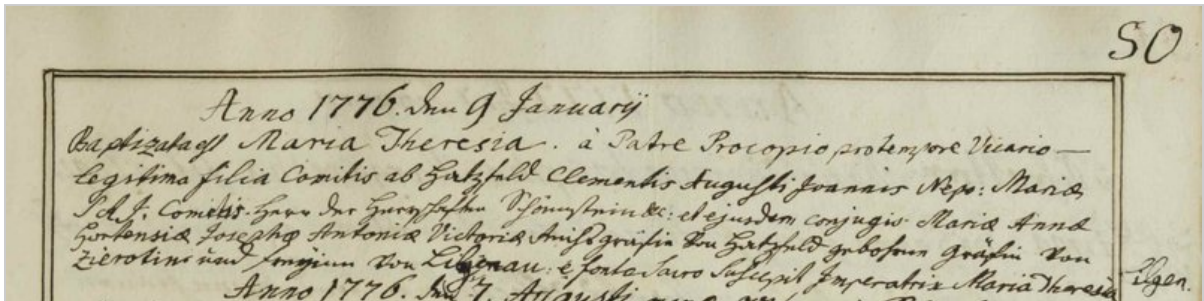 50
Anno 1776. den 9 Januarij
Baptizata est Maria Theresia. à Patre Procopio pro tempore Vicario —
legitima filia Comitis ab Hatzfeld Clementis Augusti Joannis Nepo: Mariæ
S. R. J: Comitis. Herr der Herrschaften Schönstein &c: et ejusdem conjugis Mariæ Annæ
Hortensiæ Josephæ Antoniæ Victoriæ gräfin von Hatzfeld gebohrnen Gräfin von
Zierotin und freyin von Lilgenau: e fonte Sacro Suscepit Imperatrix Maria Theresia
Anno 1776. den 7. Augusti